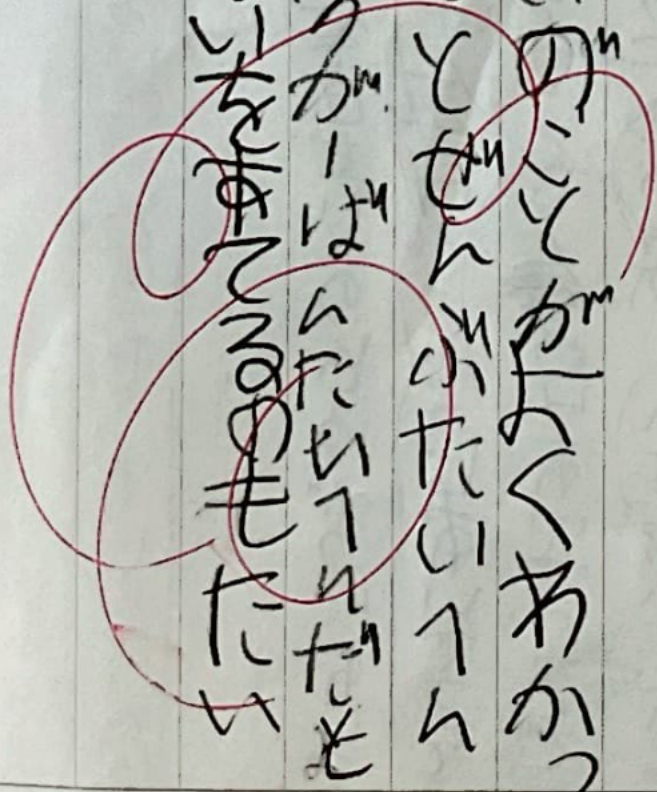 のことがよくわかっ
とぜんぶたいへん
うが一ばんたいへんだと
いをすてるのもたい